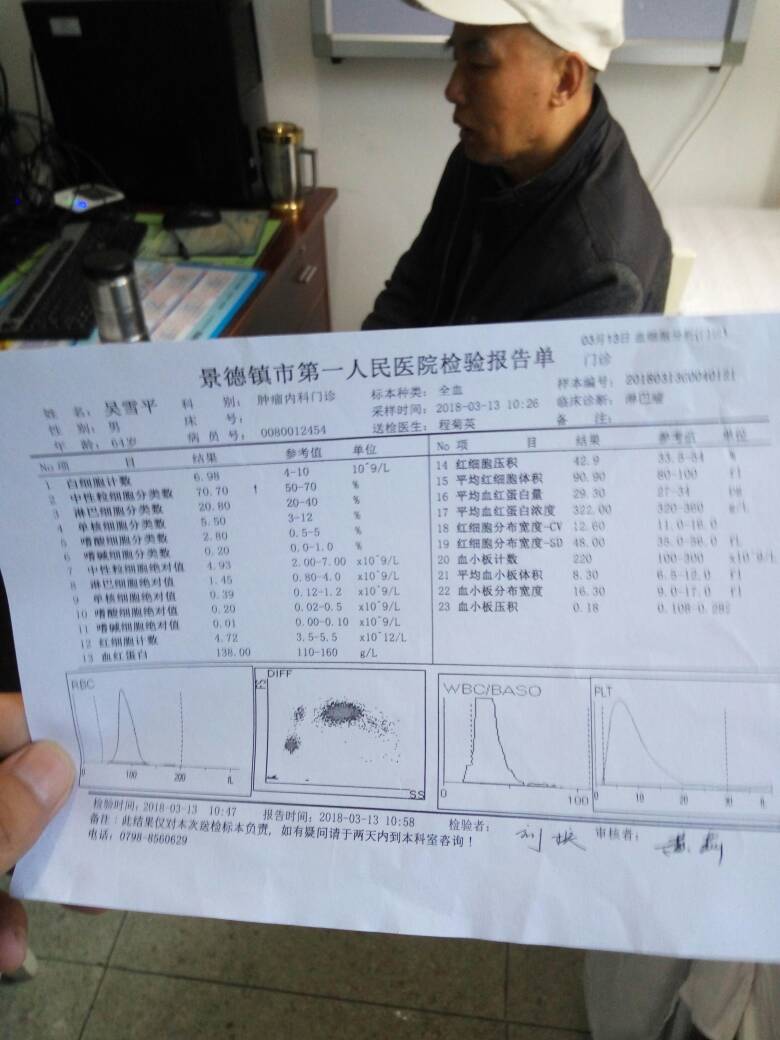 03月13日 血细胞分析(门诊)
景德镇市第一人民医院检验报告单 门诊
姓 名: 吴雪平 科 别: 肿瘤内科门诊 标本种类: 全血 样本编号: 20180313C0040121
性 别: 男 床 号: 采样时间: 2018-03-13 10:26 临床诊断: 淋巴瘤
年 龄: 64岁 病 员 号: 0080012454 送检医生: 程菊英 备 注:
No 项 目 结果 参考值 单位
1 白细胞计数 6.98 4-10 10^9/L
2 中性粒细胞分类数 70.70 ↑ 50-70 %
3 淋巴细胞分类数 20.80 20-40 %
4 单核细胞分类数 5.50 3-12 %
5 嗜酸细胞分类数 2.80 0.5-5 %
6 嗜碱细胞分类数 0.20 0.0-1.0 %
7 中性粒细胞绝对值 4.93 2.00-7.00 x10^9/L
8 淋巴细胞绝对值 1.45 0.80-4.0 x10^9/L
9 单核细胞绝对值 0.39 0.12-1.2 x10^9/L
10 嗜酸细胞绝对值 0.20 0.02-0.5 x10^9/L
11 嗜碱细胞绝对值 0.01 0.00-0.10 x10^9/L
12 红细胞计数 4.72 3.5-5.5 x10^12/L
13 血红蛋白 138.00 110-160 g/L
No 项 目 结果 参考值 单位
14 红细胞压积 42.9 %
15 平均红细胞体积 90.90 80-100 fl
16 平均血红蛋白量 29.30 27-34 pg
17 平均血红蛋白浓度 322.00 320-360 g/L
18 红细胞分布宽度-CV 12.60 11.0-16.0
19 红细胞分布宽度-SD 48.00 35.0-56.0 fL
20 血小板计数 220 100-300 x10^9/L
21 平均血小板体积 8.30 6.5-12.0 fl
22 血小板分布宽度 16.30 9.0-17.0 fl
23 血小板压积 0.18 0.108-0.282
RBC
0 100 200 fL
DIFF
FS
SS
WBC/BASO
0 100
PLT
0 10 20 30 fL
检验时间: 2018-03-13 10:47 报告时间: 2018-03-13 10:58 检验者: 审核者:
备注: 此结果仅对本次送检标本负责, 如有疑问请于两天内到本科室咨询!
电话: 0798-8560629